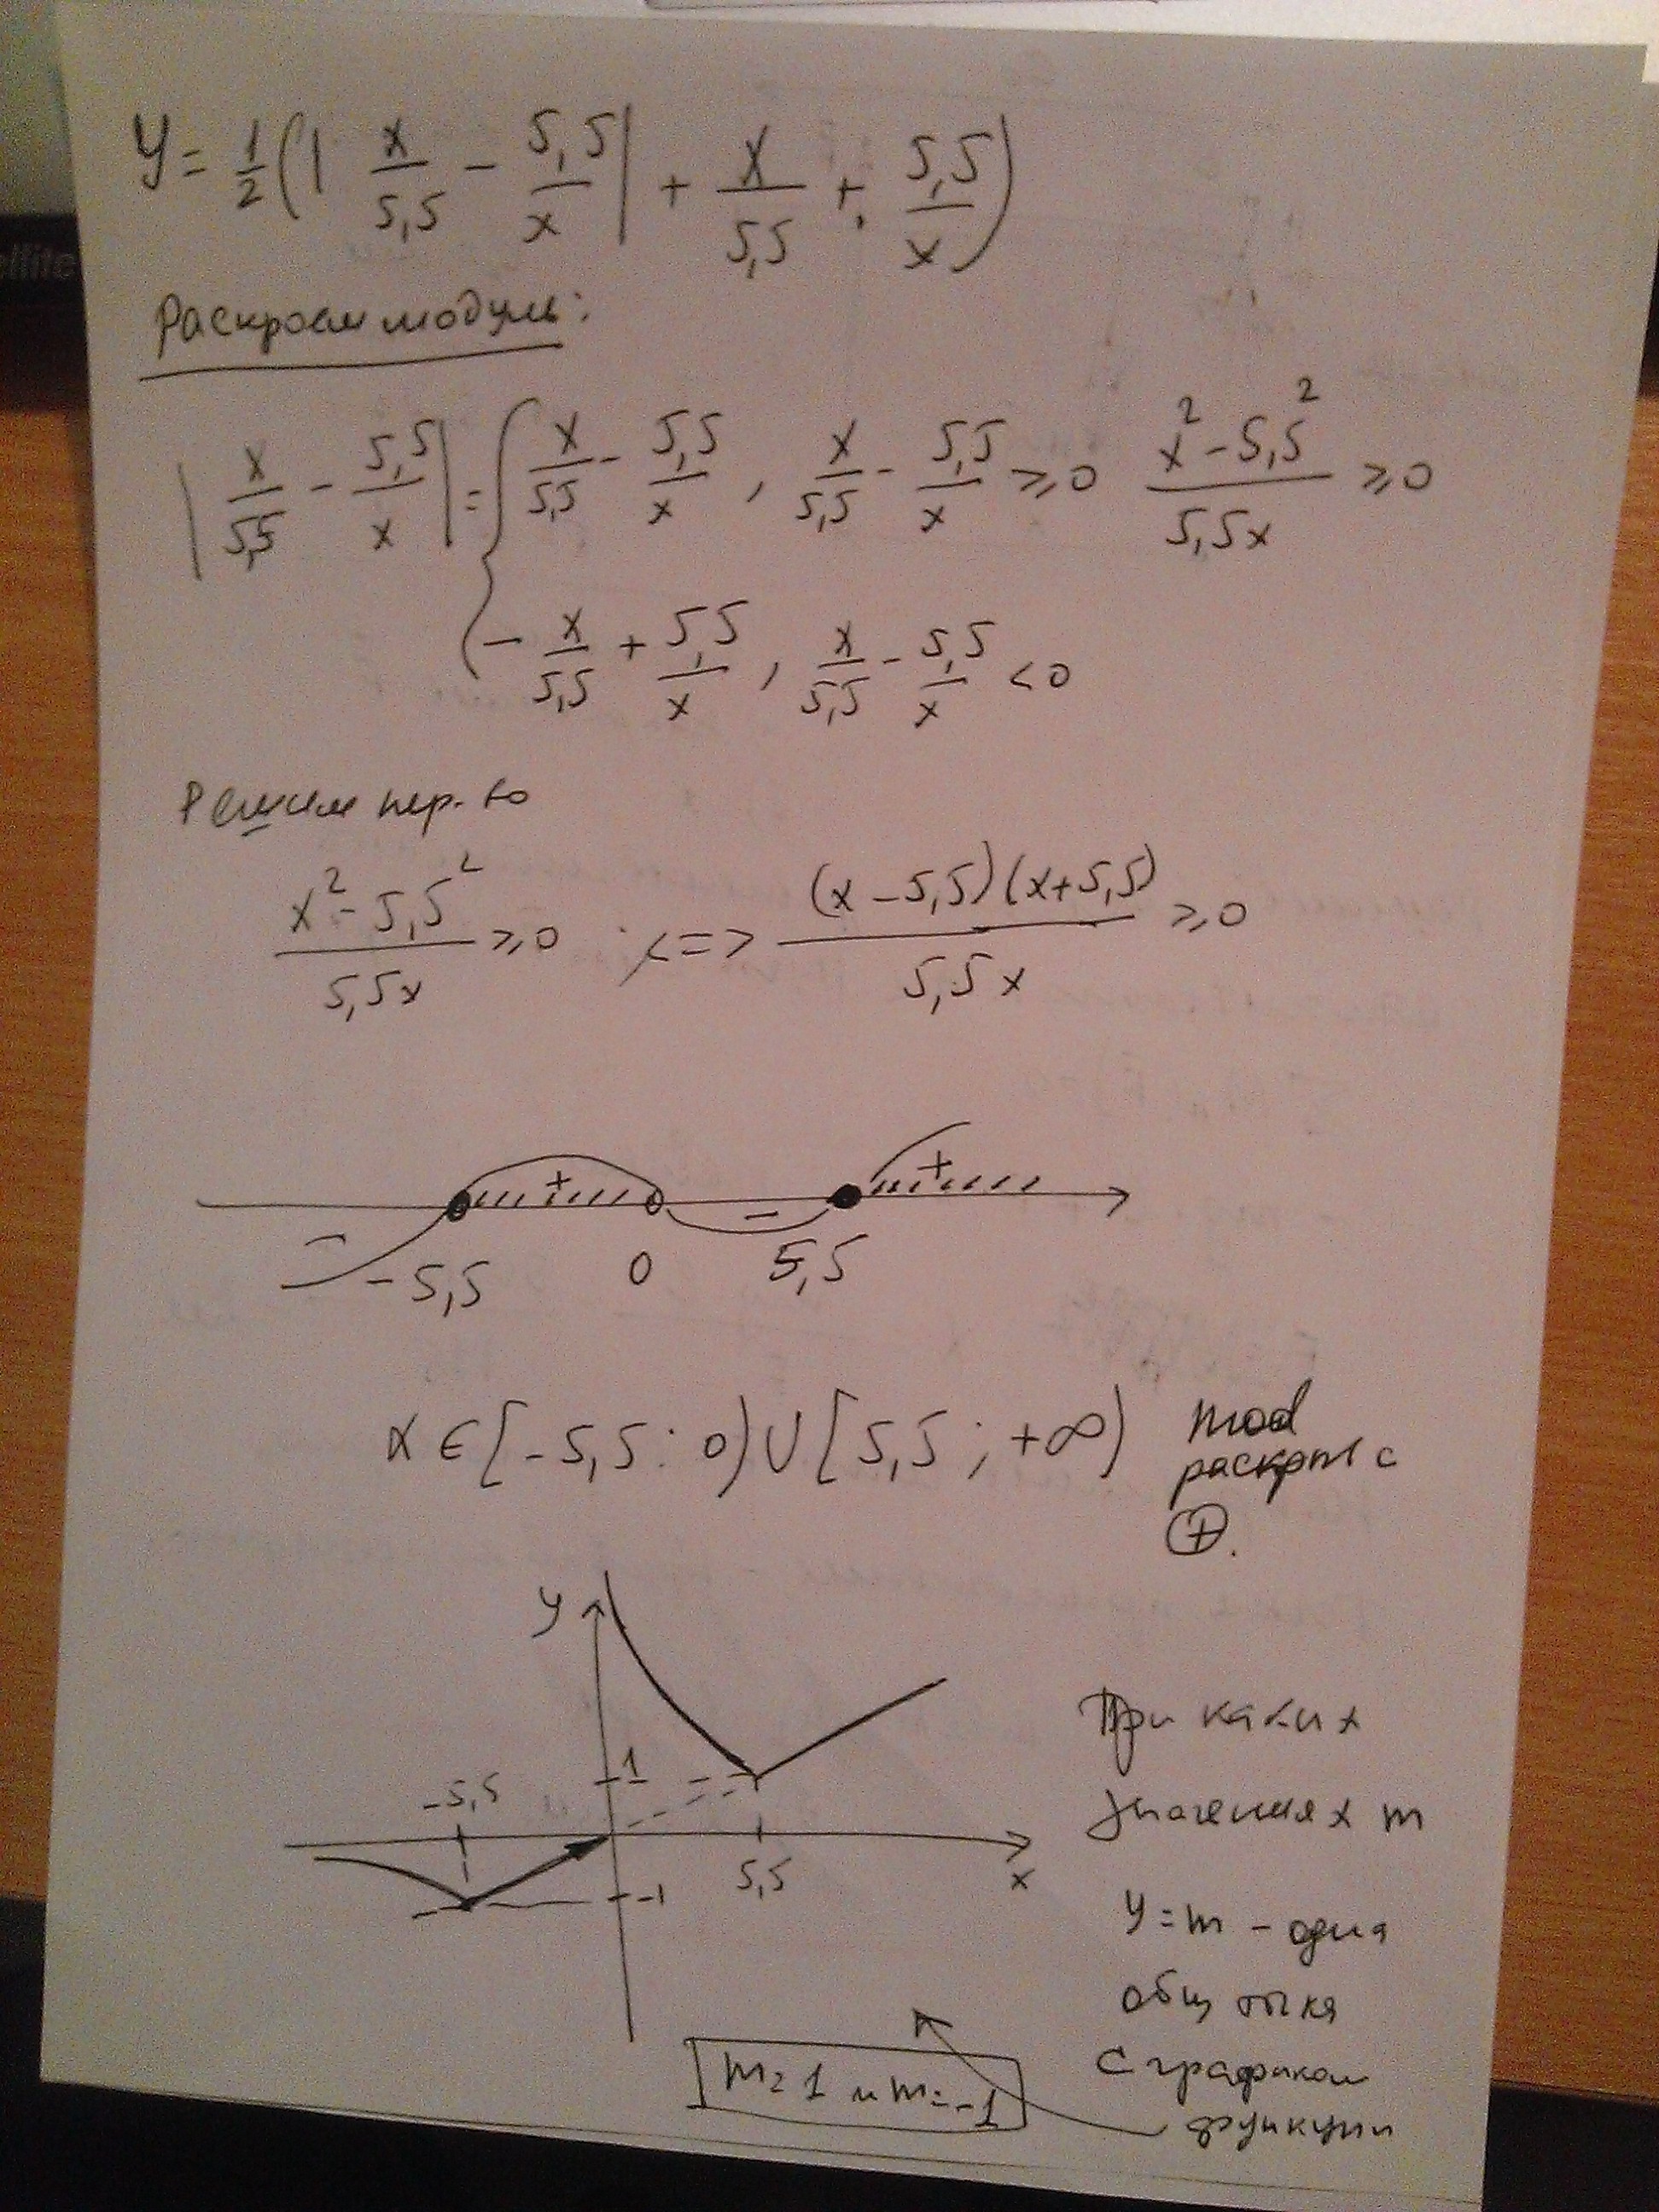 y = 1/2 (| x/5,5 - 5,5/x | + x/5,5 + 5,5/x)
ellite
Раскроем модуль:
| x/5,5 - 5,5/x | = { x/5,5 - 5,5/x , x/5,5 - 5,5/x ≥ 0 (x² - 5,5²)/5,5x ≥ 0
- x/5,5 + 5,5/x , x/5,5 - 5,5/x < 0
Решим нер-во
(x² - 5,5²)/5,5x ≥ 0 <=> (x - 5,5)(x + 5,5)/5,5x ≥ 0
- + - +
-5,5 0 5,5
x ∈ [-5,5 ; 0) ∪ [5,5 ; +∞) mod
раскрыт с
⊕.
y
1
-5,5
5,5
x
-1
При каких
значениях m
y = m - одна
общ точка
с графиком
функции
m = 1 и m = -1